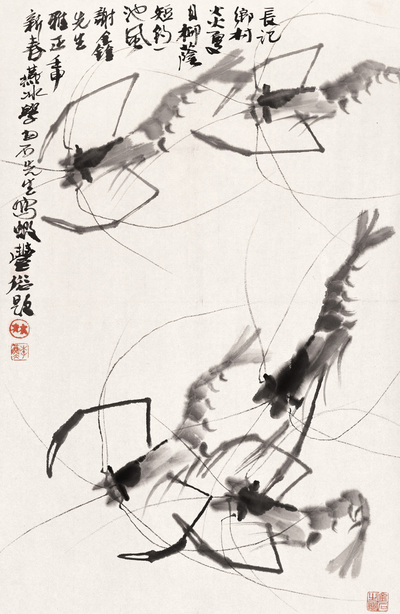 長記
鄉村
炎夏
日柳蔭
短釣
池風
謝金
先生
雅正壬申
新春燕冰學白石先生寫蝦題